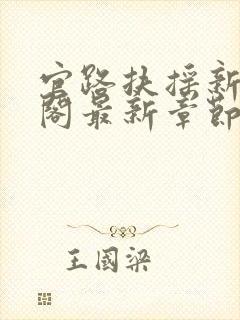 官路扶摇新
阁最新章节
王国梁